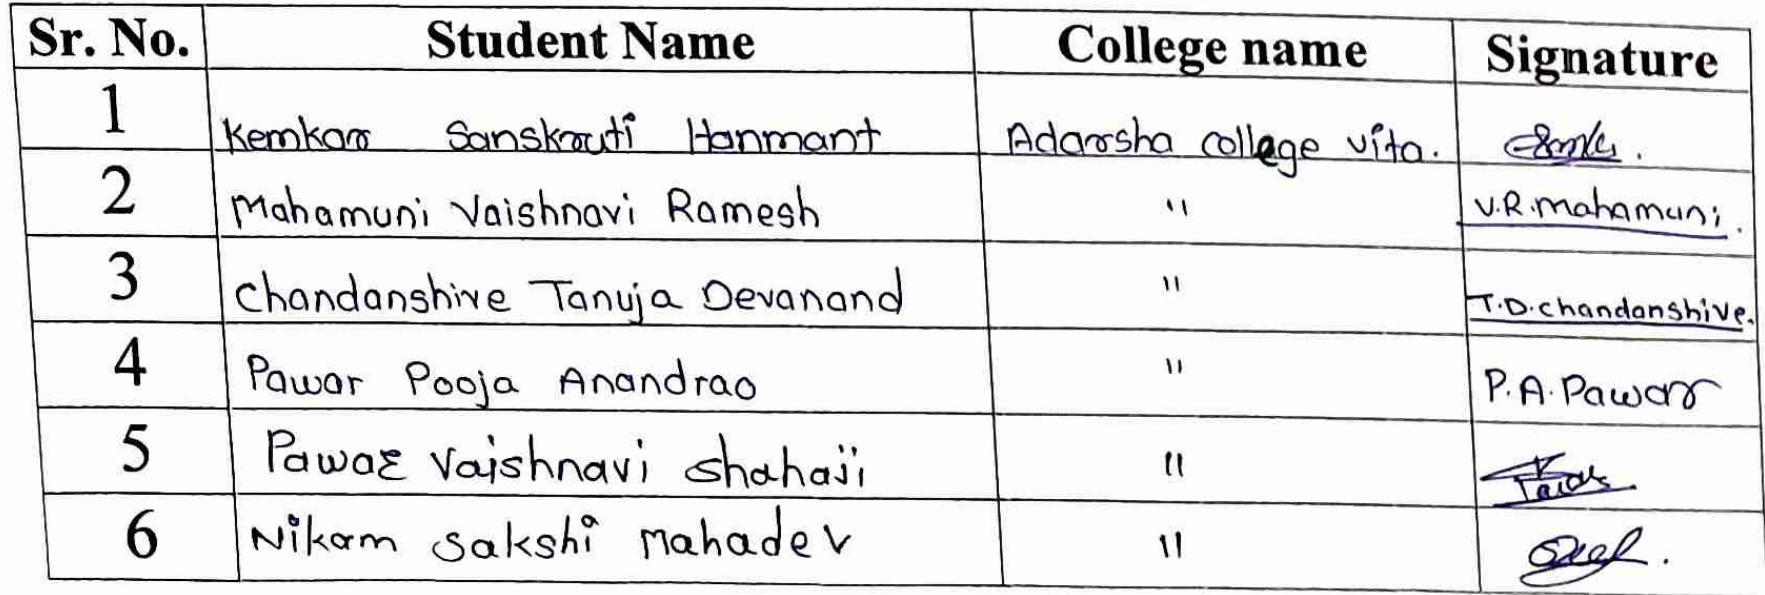 Sr. No. Student Name College name Signature
1 Kemkar Sanskruti Hanmant Adarsha college vita.
2 Mahamuni Vaishnavi Ramesh " V.R.mahamuni.
3 Chandanshive Tanuja Devanand " T.D.chandanshive.
4 Pawar Pooja Anandrao " P.A.Pawar
5 Pawar Vaishnavi shahaji "
6 Nikam sakshi mahadev "